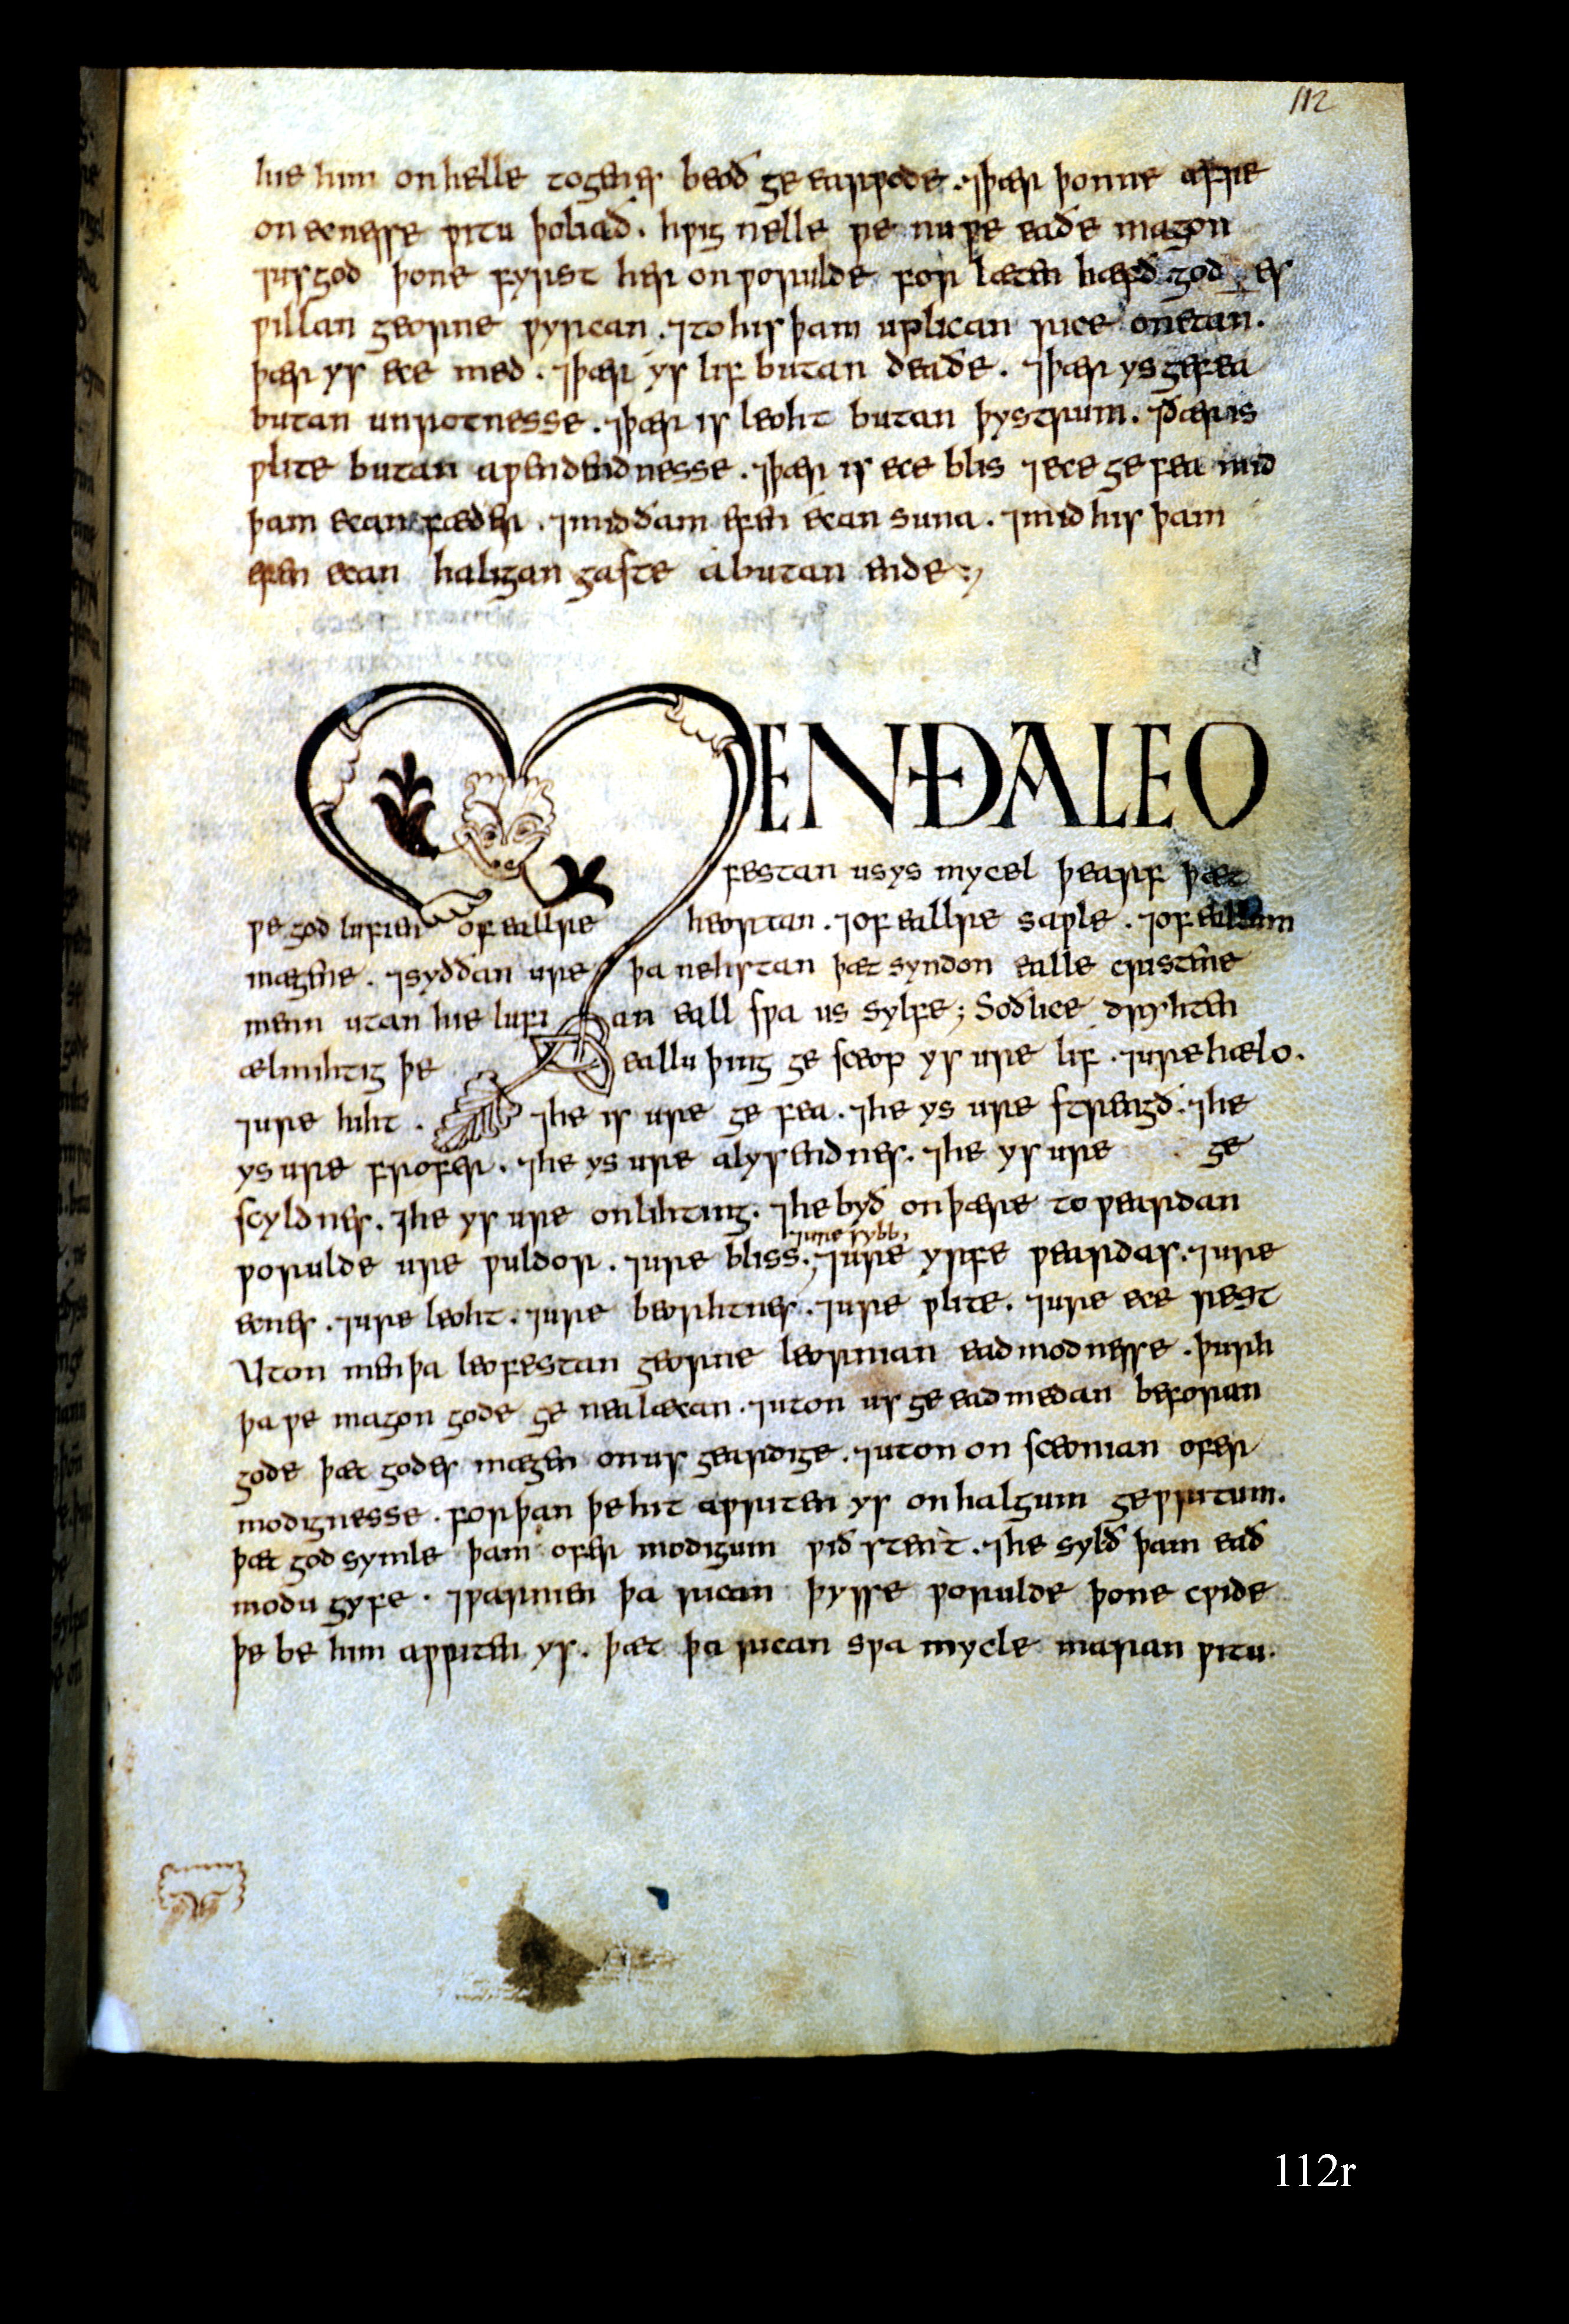 112
hie him on helle togenes beoð ge earƿode · ⁊þær þonne æfre
on ecnesse ƿitu þoliað · hƿig nelle ƿe nu ƿe eaðe magon
⁊us god þone fyrst her on ƿorulde for læten hæfð god es
ƿillan georne ƿyrcan · ⁊to his þam uplican rice onetan ·
þær ys ece med · ⁊þær ys lif butan deaðe · ⁊þær ys gefea
butan unrotnesse · ⁊þær is leoht butan þystrum · ⁊ðær is
ƿlite butan aƿendendnesse · ⁊þær is ece blis ⁊ece ge fea mid
þam ecan fæder · ⁊mid ðam efen ecan suna · ⁊mid his þam
efen ecan haligan gaste á butan ende :,
MEN ÐA LEO
festan us ys mycel þearf þæt
ƿe god lufien of eallre heortan · ⁊of eallre saƿle · ⁊of eallum
mægene · ⁊syððan ure þa nehstan þæt syndon ealle cristene
menn utan hie lufi an eall sƿa us sylfe; Soðlice dryhten
ælmihtig þe eallu þing ge sceop ys ure lif · ⁊ure hælo ·
⁊ure hiht · ⁊he is ure ge fea · ⁊he ys ure strengð · ⁊he
ys ure frofer · ⁊he ys ure alysendnes · ⁊he ys ure ge
scyldnes · ⁊he ys ure onlihting · ⁊he byð on þære to ƿeardan
⁊ure sybb,
ƿorulde ure ƿuldor · ⁊ure bliss · ⁊ure yrfe ƿeardas · ⁊ure
ecnes · ⁊ure leoht · ⁊ure beorhtnes · ⁊ure ƿlite · ⁊ure ece rest
Uton men þa leofestan georne leornian ead modnesse · þurh
þa ƿe magon gode ge nealæcan · ⁊uton us ge ead medan beforan
gode þæt godes mægen on us geardige · ⁊uton on sceonian ofer
modignesse · for þan þe hit aƿriten ys on halgum geƿritum ·
þæt god symle þam ofer modigum ƿið stent · ⁊he sylð þam ead
modu gyfe · ⁊ƿarnien þa rican þysse ƿorulde þone cƿide
þe be him aƿƿiten ys · þæt þa rican sƿa mycle maran ƿitu ·
112r